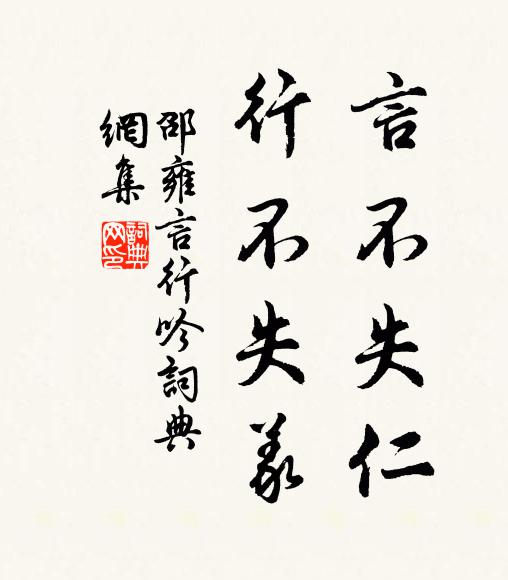 言不失仁
行不失義
邵雍言行吟詞典
網集
詞典
网印